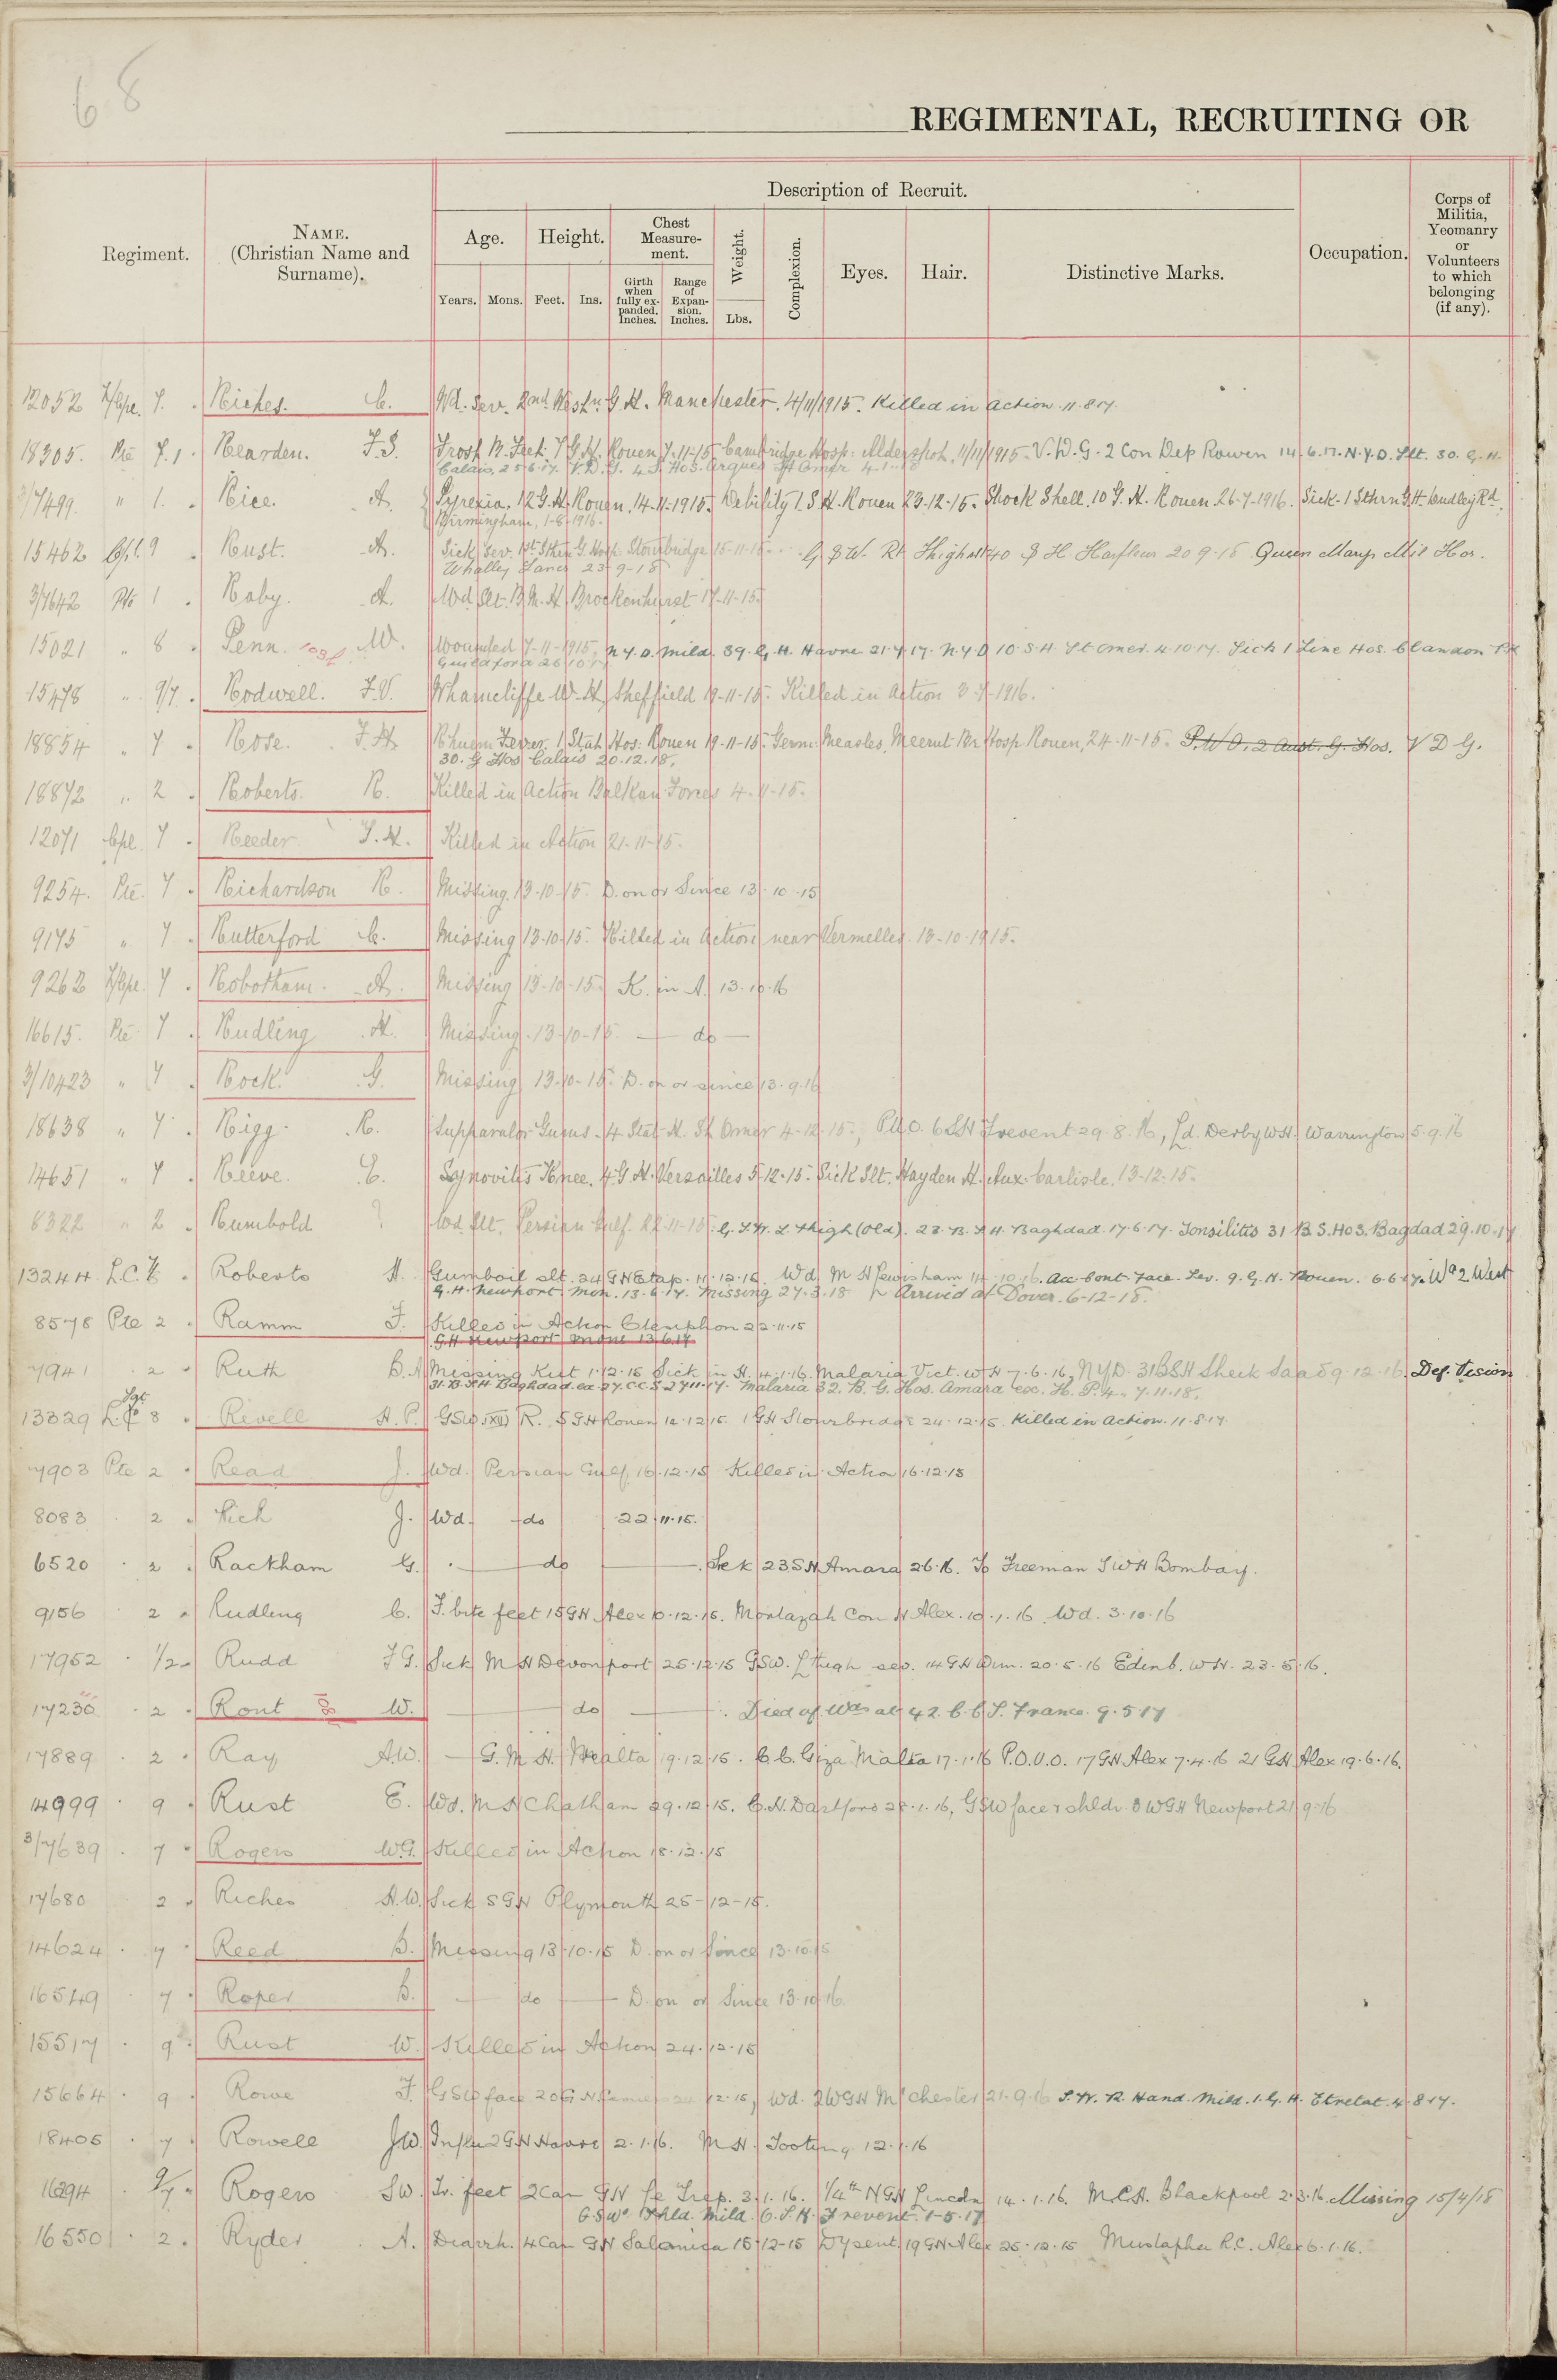 68
REGIMENTAL, RECRUITING OR
Regiment.
NAME.
(Christian Name and
Surname).
Description of Recruit.
Age.
Height.
Chest
Measure-
ment.
Weight.
Complexion.
Eyes.
Hair.
Distinctive Marks.
Occupation.
Corps of
Militia,
Yeomanry
or
Volunteers
to which
belonging
(if any).
Years.
Mons.
Feet.
Ins.
Girth
when
fully ex-
panded.
Inches.
Range
of
Expan-
sion.
Inches.
Lbs.
12052 L/Cpl. 7. Riches. C. Wd. Sev. 2nd Westn. G.H. Manchester. 4/11/1915. Killed in action. 11.8.17.
18305. Pte 7.1 Rearden. J.S. Frost B. Feet. 7 G.H. Rouen 7.11-15 Cambridge Hosp. Aldershot. 11/11/1915. V.D.G. 2 Con Dep Rouen 14.6.17. N.Y.D. Slt. 30. G.H.
Calais, 25.6.17. V.D.G. 4.S. Hos. Arques St Omer 4-1-
3/7499. " 1. Rice. A. Pyrexia. 12 G.H. Rouen. 14-11-1915. Debility 1. S.H. Rouen 23-12-15. Shock Shell. 10 G.H. Rouen. 26-7-1916. Sick. 1 Sthrn G.H. Dudley Rd.
Birmingham, 1-8-1916.
15462 Cpl. 9 Rust. A. Sick Sev. 1st Sthn G. Hosp. Stourbridge 15-11-15. G.S.W. Rt Thigh 40 S H. Harfleur 20 9.18 Queen Marys Mil Hos.
Whalley Lancs 23-9-18
3/7642 Pte 1 Raby. A. Wd. Slt. B.M.H. Brockenhurst 17-11-15.
15021 " 8 Penn. W. Wounded 7-11-1915. N.Y.D. mild. 39. G.H. Havre. 21.7.17. N.Y.D 10. S.H St Omer. 4.10.17. Sick 1 Line Hos. Clandon Pk
Guildford 26.10.17
15478 " 9/7. Rodwell. F.V. Wharncliffe W.H. Sheffield 19-11-15. Killed in Action 3-7-1916.
18854 " 7 Rose. F.H. Rhuem Fever. 1 Stat. Hos. Rouen 19-11-15. Germ. Measles, Meerut Br. Hosp Rouen, 24-11-15. P.U.O. 2 Aust. G. Hos. V D G.
30. G Hos Calais 20.12.18.
18872 " 2 Roberts. R. Killed in Action Balkan Forces 4-11-15.
12071 Cpl. 7 Reeder. J.H. Killed in Action 21-11-15.
9254. Pte. 7 Richardson R. Missing 13-10-15. D. on or Since 13.10.15
9175 " 7 Rutterford C. Missing 13-10-15. Killed in Action near Vermelles. 13-10-1915.
9262 L/Cpl. 7 Robotham. A. Missing 13-10-15. K. in A. 13.10.16
16615. Pte 7 Rudling H. Missing 13-10-15. — do —
3/10423 " 7 Rock. G. Missing 13-10-15. D. on or since 13.9.16
18638 " 7 Rigg. R. 4 Stat. H. St Omer 4-12-15., P.U.O. 6 S.H. Frevent 29.8.16, Ld. Derby W.H. Warrington 5.9.16
14651 " 7 Reeve. C. Synovitis Knee. 4 G.H. Versailles 5-12-15. Sick Slt. Hayden H. Aux. Carlisle. 13-12-15.
8322 " 2 Rumbold ? Wd. Slt. Persian Gulf. 22-11-15. G.S.W. L Thigh (Old). 23. B.S.H. Baghdad. 17.6.17. Tonsilitis 31 B.S. Hos. Bagdad 29.10.17
13244 L.C. Roberts A. Gumboil slt. 24 GH Etap. 11.12.15. Wd. M H Lewisham 14.10.16. Acc. Cont. Face. Sev. 9. G.H. Rouen. 6.6.17. Wd 2 West
G.H. Newport. Mon. 13.6.17. Missing 27.3.18 Arrived at Dover. 6-12-18.
8578 Pte 2 Ramm F. Killed in Action Ctesiphon 22.11.15
G.H. Newport Mon 13.6.17
7941 2 Ruth B.A Missing Kut 1.12.15 Sick in H. 4.1.16. Malaria Vict. WH 7.6.16, NYD. 31 BSH Sheik Saad 9.12.16. Def. Vision
31. B.S.H Baghdad ex 27. C.C.S 27.11.17. Malaria 32. B. G. Hos. Amara 7.11.18.
13329 Sgt 8 Revell H.P. GSW R. 5 GH Rouen 12.15 1 GH Stourbridge 24.12.15. Killed in action. 11.8.17.
7903 Pte 2 Read J. Wd. Persian Gulf 16.12.15 Killed in Action 16.12.15
8083 2 Rich J. Wd. do 22.11.15.
6520 2 Rackham G. do Sick 23 SH Amara 26.16. To Freeman T WH Bombay.
9156 2 Rudling C. F. bite feet 15 GH Alex 10.12.15. Montazah Con H Alex. 10.1.16. Wd. 3.10.16
17952 1/2 Rudd J G. Sick M H Devonport 25.12.15 GSW. L thigh sev. 14 GH Wim. 20.5.16 Edinb. WH. 23.5.16.
17230 2 Ront W. do Died of Wds at 42. C.C.S. France. 9.5.17
17889 2 Ray A.W. G.M H. Malta 19.12.15. C.C. Giza Malta 17.1.16 P.O.U.O. 17 GH Alex 7.4.16 21 GH Alex 19.6.16.
14999 9 Rust E. Wd. M H Chatham 29.12.15. C.H. Dartford 28.1.16, GSW face & shldr. 3 WGH Newport 21.9.16
3/7639 7 Rogers W.G. Killed in Action 18.12.15
17680 2 Riches A.W. Sick 5 GH Plymouth 25-12-15.
14624 7 Reed B. Missing 13.10.15 D. on or Since 13.10.15
16549 7 Roper B. do D. on or Since 13.10.16.
15517 9 Rust W. Killed in Action 24.12.15
15664 9 Rowe F. GSW face 20 G H Camiers 12.15, Wd. 2WGH M'chester 21.9.16 S.W. R. Hand. Mild. 1. G. H. Etretat. 4.8.17.
18405 7 Rowell J.W. Influ 2 GH Havre 2.1.16. M H. Tooting 12.1.16
16294 9/7 Rogers S W. Tr. feet 2 Can GH Le Trep. 3.1.16. 1/4th NGH Lincoln 14.1.16. M.C.H. Blackpool 2.3.16. Missing 15/4/18
G.S.W. Shld. Mild. 6. S.H. Frevent. 1-5.17
16550 2 Ryder A. Diarrh. 4 Can GH Salonica 15-12-15 Dysent. 19 GH Alex 25.12.15 Mustapha R.C. Alex 6.1.16.